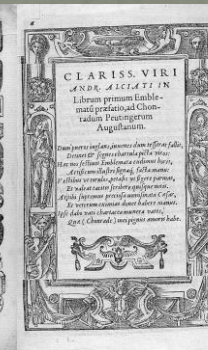 CLARISS. VIRI
ANDR. ALCIATI IN
Librum primum Emble-
matũ præfatio, ad Chon-
radum Peutingerum
Augustanum.
Dum pueros iuglans, iuvenes dum tessera fallit,
Detinet & segnes chartula picta viros:
Hæc nos festivis Emblemata cudimus horis,
Artificum illustri signaq́; facta manu:
Vestibus ut torulos, petasis ut figere parmas,
Et valeat tacitis scribere quisque notis.
At tibi supremus pretiosa nomismata Cæsar,
Et veterum eximias donet habere manus.
Ipse dabo vati chartacea munera vates,
Quæ (Chonrade) mei pignus amoris habe.